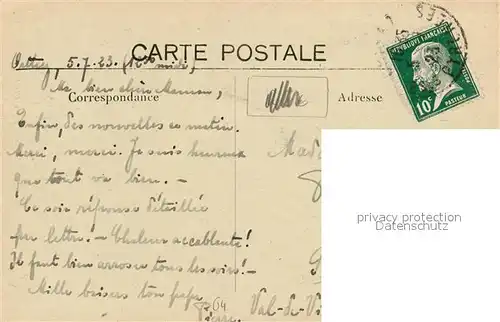 CARTE POSTALE
5.7.23. (midi)
Ma bien chère Maman,
Correspondance
Adresse
RÉPUBLIQUE FRANÇAISE
10c
PASTEUR
Enfin, des nouvelles ce matin.
Merci, merci. Je suis heureux
que tout va bien. —
Ce soir réponse détaillée
par lettre. — Chaleur accablante!
Il faut bien arroser tous les soirs! —
Mille baisers ton
Pierre
64
Val-de-Vi
privacy protection
Datenschutz